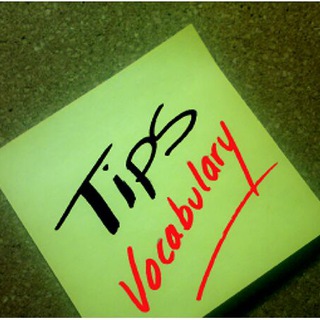 Tips
Vocabulary